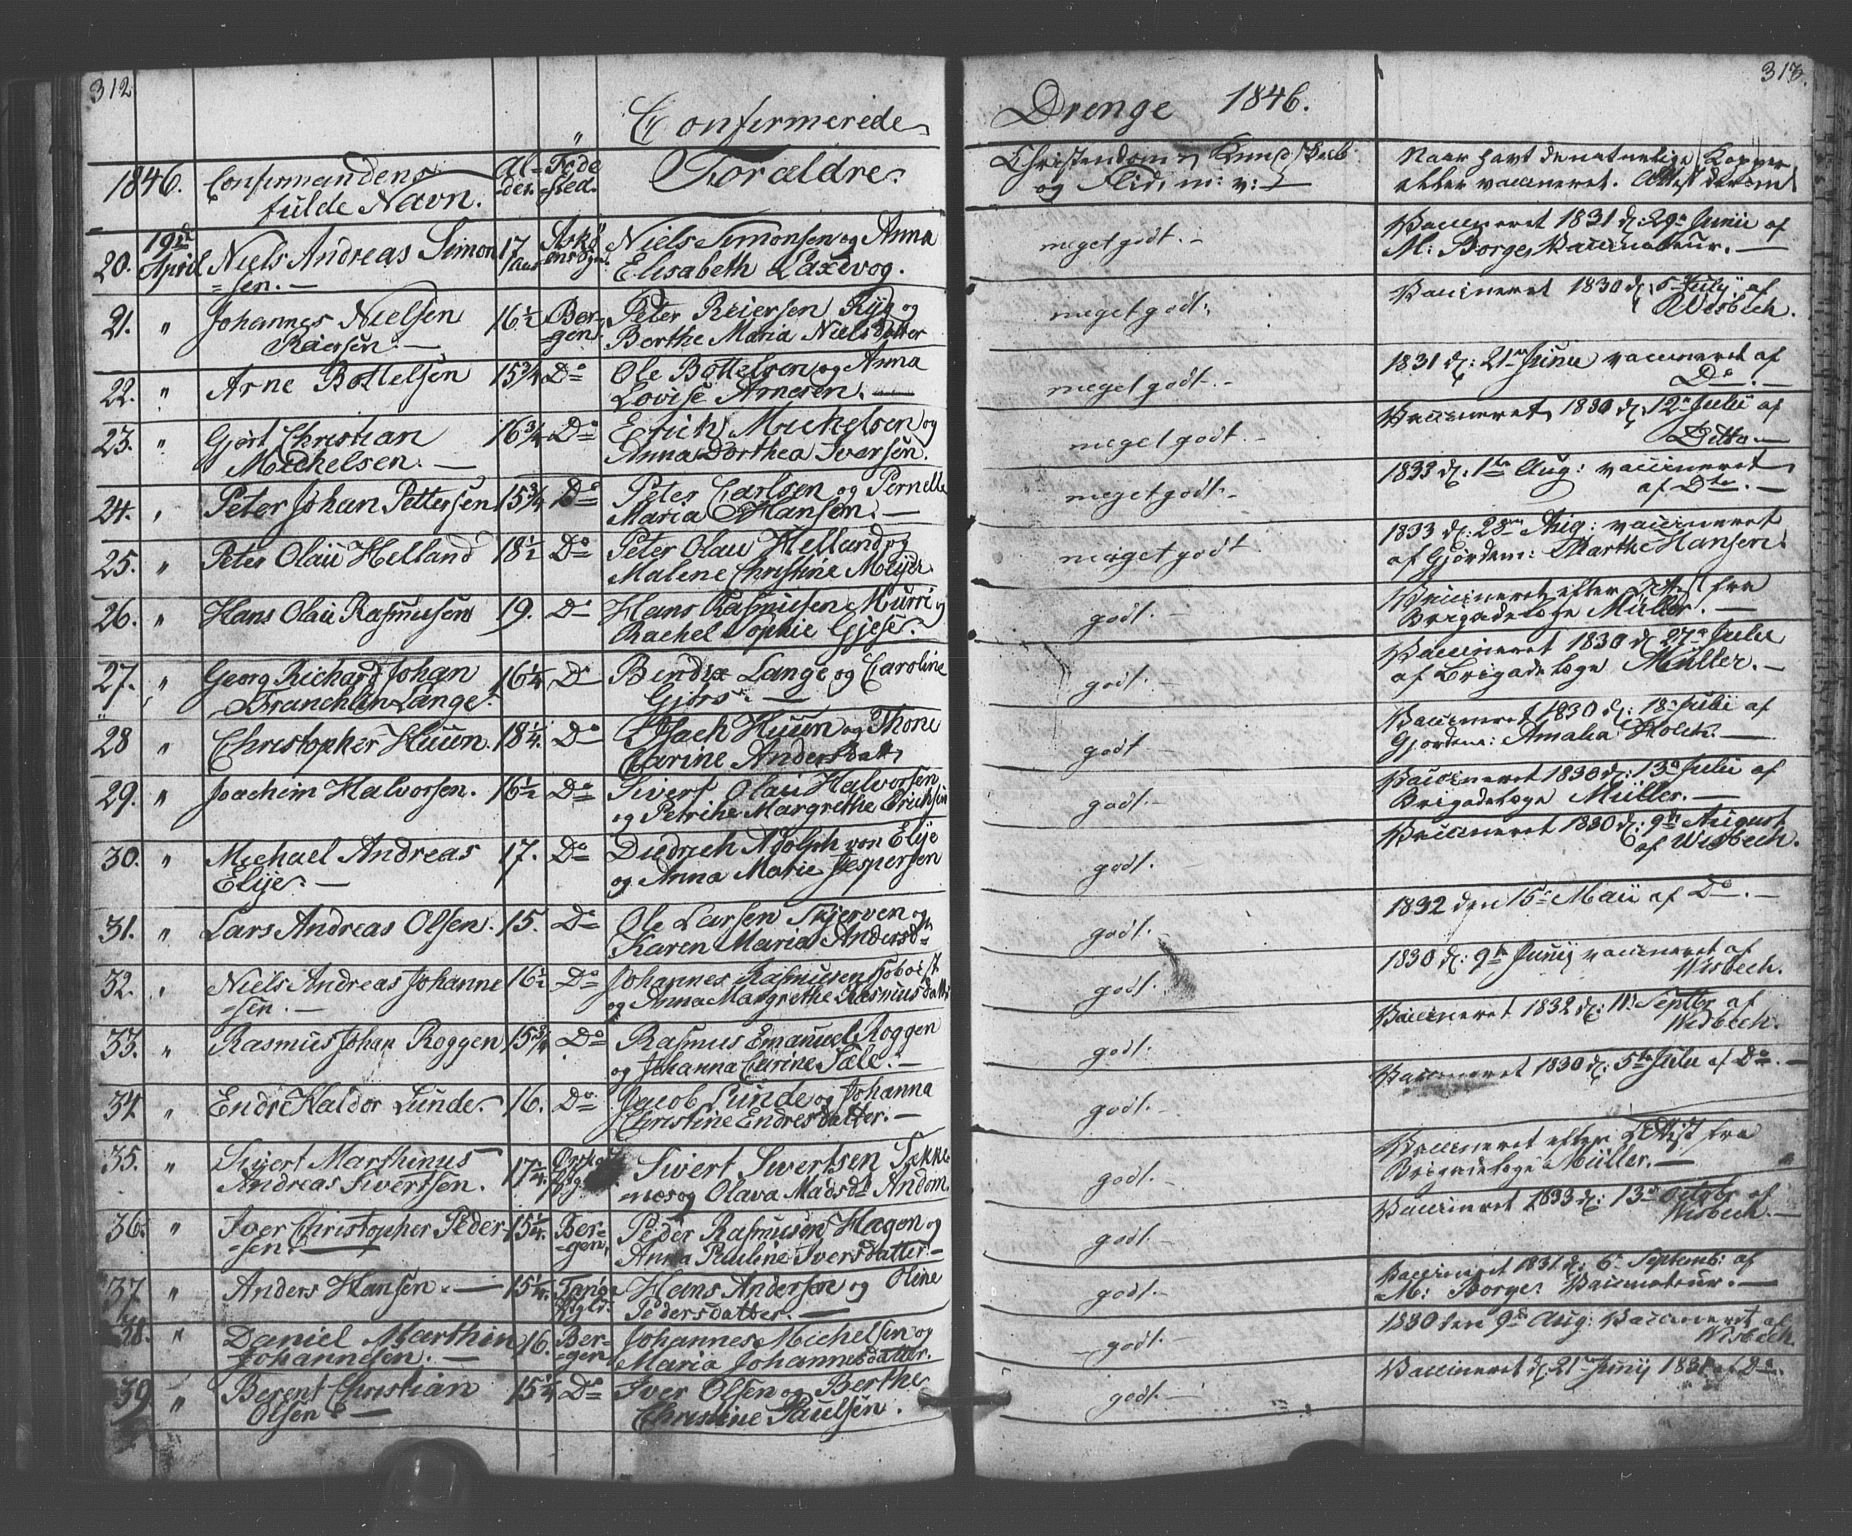 312
Confirmerede
1846. Confirmandens Al- Føde Forældre.
fulde Navn. der. sted.
19de
20. April Niels Andreas Simon 17 Niels Simonsen og Anna
=sen. — Elisabeth Laxevog.
21. " Johannes Nielsen 16½ Ber- Peter Reiersen Ryg og
Reiersen. — =gen Berthe Maria Nielsdatter
22. " Arne Bottelsen 15¾ Do Ole Bottelsen og Anna
Lovise Arnesen. —
23. " Gjert Christian 16¾ Do Erich Michelsen og
Michelsen. — Anna Dorthea Iversen.
24. " Peter Johan Pettersen 15¾ Do Peter Carlsen og Pernelle
Maria Hansen. —
25. " Peter Olaii Helland 18½ Do Peter Olaii Helland og
Malene Christine Meyer
26. " Hans Olaii Rasmussen 19. Do Hans Rasmussen Murri og
Rachel Sophie Gjese.
27. " Georg Richard Johan 16¼ Do Bendix Lange og Caroline
Franchlin Lange. Gjørs. —
28 " Christopher Huun. 18¼. Do Isach Huun og Thone
Carine Andersdatt
29. " Joachim Halvorsen. 16½ Do Sivert Olaii Halvorsen
og Petrike Margrethe Erichsen
30. " Michael Andreas 17. Do Diedrich Adolph von Elije
Elije. — og Anna Marie Jespersen
31. " Lars Andreas Olsen. 15. Do Ole Larsen Skjerven og
Karen Maria Andersdt
32. " Niels Andreas Johanne 16½ Do Johannes Rasmusen Hoboist
=sen. — og Anna Margrethe Rasmusdatt
33. " Rasmus Johan Roggen 15¾ Do Rasmus Emanuel Roggen
og Johanna Carine Sæle. —
34. " Endr Haldor Lunde. 16. Do Jacob Lunde og Johanna
Christine Endresdatter. —
35. " Sivert Marthinus 17¼ Sivert Sivertsen Tekke
Andreas Sivertsen. Olava Madsdt
36. " Iver Christopher Peder 15¼ Ber- Peder Rasmusen Hagen og
=sen. — =gen. Anna Pauline Iversdatter. —
37 " Anders Hansen. — 15¼ Hans Andersen og Oline
Pedersdatter. —
38. " Daniel Marthin 16. Ber- Johannes Michelsen og
Johannesen. — =gen. Maria Johannesdatter.
39 " Berent Christian 15¼ Do Iver Olsen og Berthe
Olsen. — Christine Paulsen.
Drenge 1846.
313.
Christendoms Kundskab
og Flid m: v:
Naar havt de naturlige Kopper
eller vaccineret. Attest derom
meget godt. — Vaccineret 1831 d: 29de Junii af
M: Borge, Vaccinateur. —
meget godt. Vaccineret 1830 d: 5 July af
Wisbech.
meget godt. — 1831 d: 21de Junii vaccineret af
Do. —
meget godt. — Vaccineret 1830 d: 12te Julii af
Ditto —
meget godt. — 1833 d: 1ste Aug: vaccineret
af Dto. —
meget godt 1833 d: 23de Aug: vaccineret
af Gjordem: Marthe Hansen.
godt. — Vaccineret efter Attest fra
Brigadelæge Müller. —
godt. — Vaccineret 1830 d: 27de Julii
af Brigadelæge Müller. —
godt — Vaccineret 1830 d: 18de Julii af
Gjordem: Amalia Holck. —
godt. — Vaccineret 1830 d: 13de Julii af
Brigadelæge Müller. —
godt. — Vaccineret 1830 d: 9de August
af Wisbech.
godt. — 1832 den 15de Maii af Do. —
godt. — 1830 d: 9de Junij vaccineret af
Wisbech.
godt. — Vaccineret 1832 d: 11te Septbr af
Wisbech.
godt. — Vaccineret 1830 d: 5te Julii af Do. —
godt. — Vaccineret efter Attest fra
Brigadelæge Müller. —
godt. — Vaccineret 1833 d: 13de Octbr af
Wisbech. —
godt. — Vaccineret 1831 d: 6te Septemb: af
M: Borge, Vaccinateur. —
godt. — 1830 den 9de Aug: Vaccineret af
Wisbech
godt. — Vaccineret d: 21de Junij 1831 af Do.